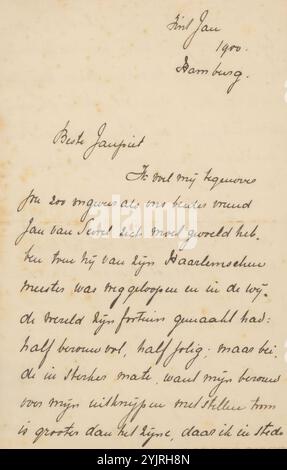 Jan
1900.
Hamburg.
Beste Janpiet
Ik voel mij tegenover
jou zoo ongeveer als ons beider vriend
Jan van Scorel zich moet gevoeld heb-
ben toen hij van zijn Haarlemschen
meester was weggeloopen en in de wij-
de wereld zijn fortuin gemaakt had:
half berouwvol, half jolig; maar bei-
de in sterke mate, want mijn berouw
over mijn uitknijpen met stillen trom
is grooter dan het zijne, daar ik in stede
alamy
alamy
Image ID: 2YJRH8N
www.alamy.com